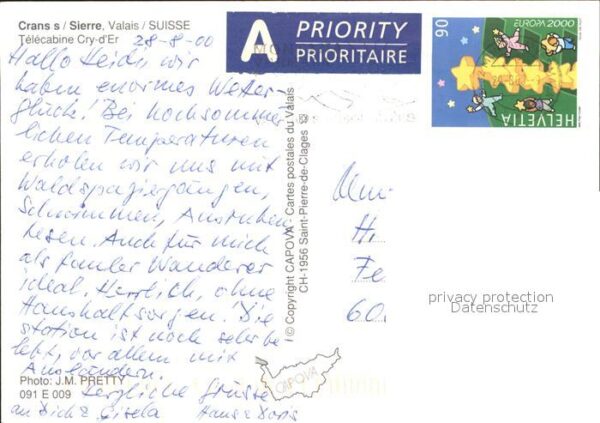 Crans s / Sierre, Valais / SUISSE
Télécabine Cry-d'Er
28-8-00
Hallo Heidi, wir
haben enormes Wetter-
glück! Bei hochsommer-
lichen Temperaturen
erholen wir uns mit
Waldspaziergängen,
Schwimmen, Ausruhen
Lesen. Auch für mich
als fauler Wanderer
ideal. Herrlich, ohne
Haushaltsorgen! Die
station ist noch sehr be
lebt, vor allem mit
Ausländern.
Herzliche Grüsse
an Dich & Gisela Hans & Doris
Photo: J.M. PRETTY
091 E 009
© Copyright CAPOVA - Cartes postales du Valais
CH-1956 Saint-Pierre-de-Clages
CAPOVA
A PRIORITY
PRIORITAIRE
90
EUROPA 2000
HELVETIA
H
Fe
60
privacy protection
Datenschutz